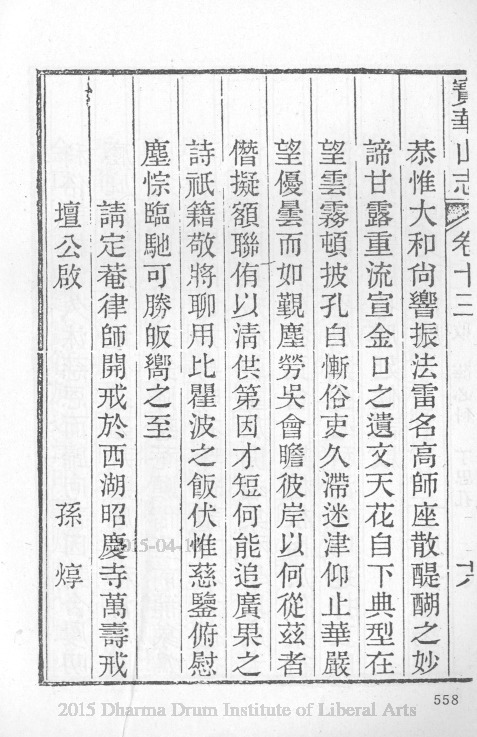 寶華山志 卷十三 十八
恭惟大和尙響振法雷名高師座散醍醐之妙
諦甘露重流宣金口之遺文天花自下典型在
望雲霧頓披孔自慚俗吏久滯迷津仰止華嚴
望優曇而如覩塵勞吳會瞻彼岸以何從茲者
僭擬額聯侑以淸供第因才短何能追廣果之
詩祇籍敬將聊用比瞿波之飯伏惟慈鑒俯慰
塵悰臨馳可勝皈嚮之至
請定菴律師開戒於西湖昭慶寺萬壽戒
壇公啟 孫焞
2015-04-1
558
2015 Dharma Drum Institute of Liberal Arts